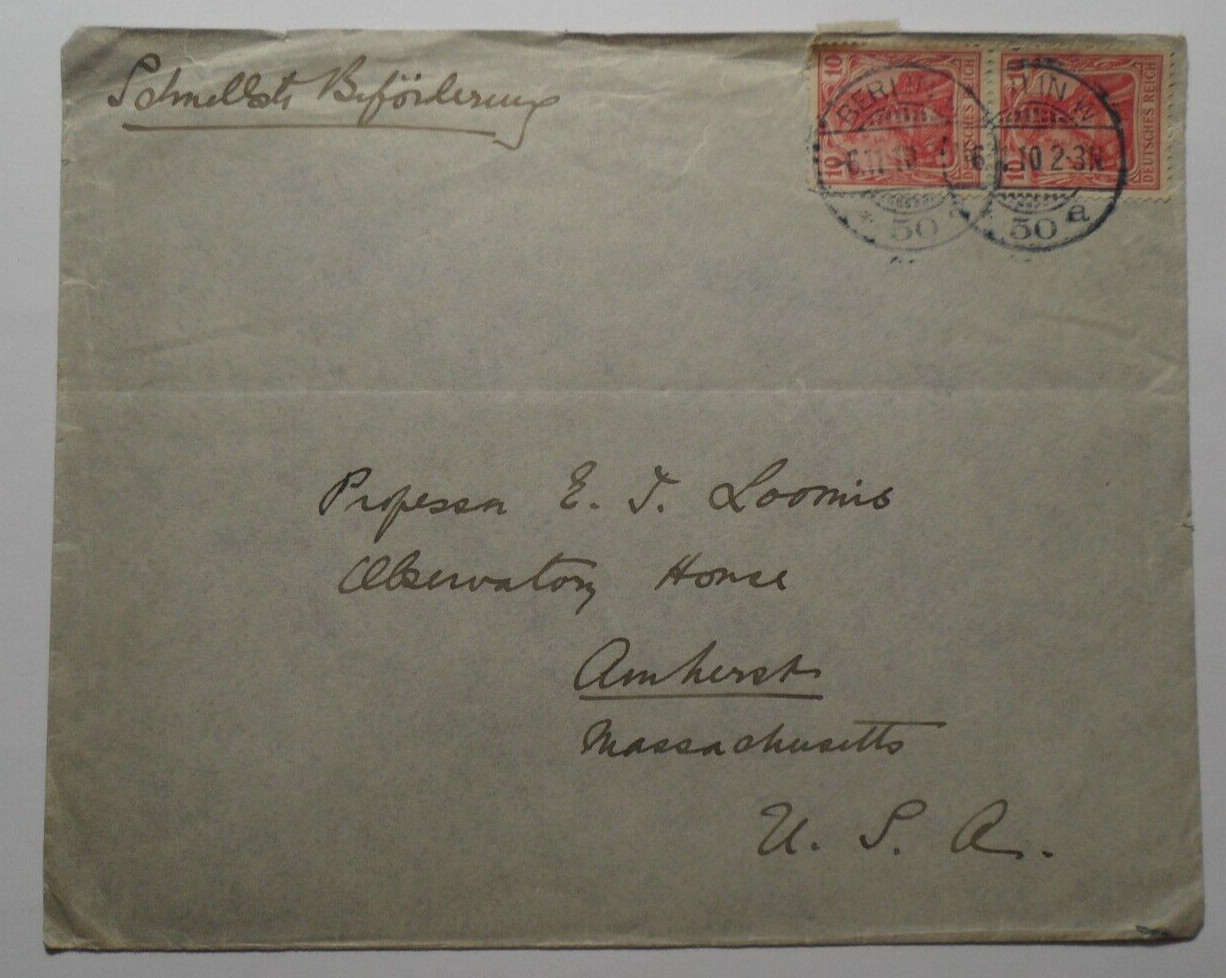 Schnellste Beförderung
10 10 DEUTSCHES REICH
10 DEUTSCHES REICH
BERLIN W
6.11.10
* 50 a
BERLIN W
6. 10 2-3N
50 a
Professor E. J. Loomis
Observatory House
Amherst
Massachusetts
U. S. A.